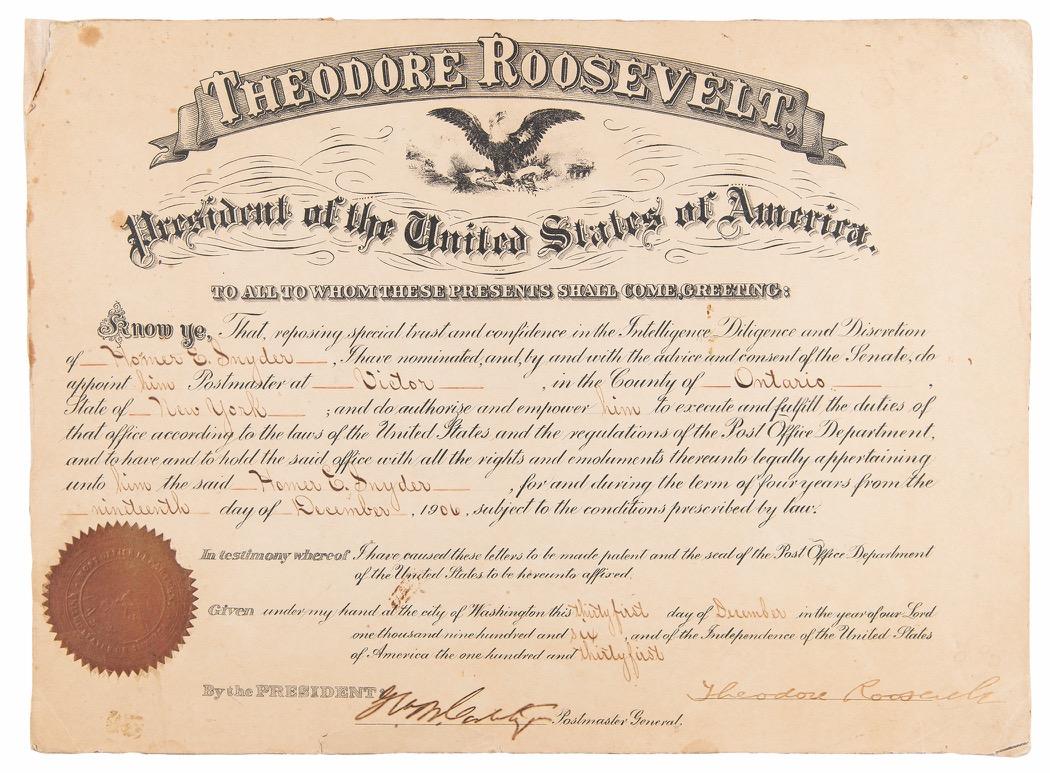 THEODORE ROOSEVELT,
President of the United States of America.
TO ALL TO WHOM THESE PRESENTS SHALL COME, GREETING:
Know ye, That, reposing special trust and confidence in the Intelligence, Diligence and Discretion
of Homer E. Snyder, I have nominated, and, by and with the advice and consent of the Senate, do
appoint him Postmaster at Victor, in the County of Ontario,
State of New York; and do authorise and empower him to execute and fulfill the duties of
that office according to the laws of the United States and the regulations of the Post Office Department,
and to have and to hold the said office with all the rights and emoluments thereunto legally appertaining
unto him the said Homer E. Snyder, for and during the term of four years from the
nineteenth day of December, 1906, subject to the conditions prescribed by law.
In testimony whereof I have caused these letters to be made patent and the seal of the Post Office Department
of the United States to be hereunto affixed.
Given under my hand at the city of Washington this thirtyfirst day of December in the year of our Lord
one thousand nine hundred and six, and of the Independence of the United States
of America the one hundred and thirtyfirst
By the PRESIDENT:
Theodore Roosevelt
Postmaster General.